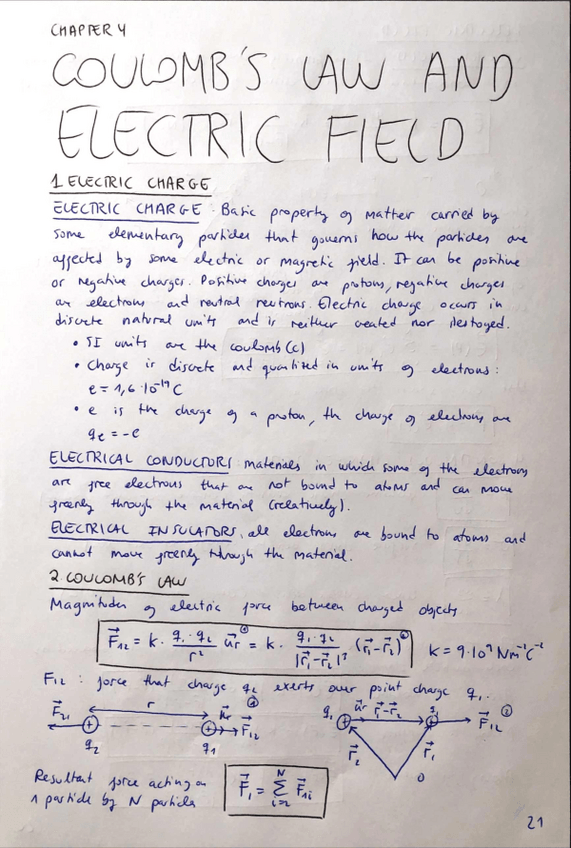 CHAPTER 4
COULOMB'S LAW AND
ELECTRIC FIELD
1 ELECTRIC CHARGE
ELECTRIC CHARGE: Basic property of matter carried by
some elementary particles that governs how the particles are
affected by some electric or magnetic field. It can be positive
or negative charges. Positive charges are protons, negative charges
are electrons and neutral neutrons. Electric charge occurs in
discrete natural units and is neither created nor destoyed.
• SI units are the coulomb (C)
• Charge is discrete and quantized in units of electrons:
e = 1,6·10⁻¹⁹ C
• e is the charge of a proton, the charge of electrons are
qe = -e
ELECTRICAL CONDUCTORS materials in which some of the electrons
are free electrons that are not bound to atoms and can move
freenly through the material (relatively).
ELECTRICAL INSULATORS, all electrons are bound to atoms and
cannot move freenly through the material.
2 COULOMB'S LAW
Magnitudes of electric force between charged objects
F⃗12 = k · q1·q2 / r² u⃗r ① = k · q1·q2 / |r⃗1-r⃗2|³ (r⃗1-r⃗2) ② K = 9·10⁹ Nm²C⁻²
F12 : force that charge q2 exerts over point charge q1.
F⃗21 r u⃗r ① F⃗12 q1 u⃗r r⃗1-r⃗2 F⃗12 ②
q2 q1 r⃗2 r⃗1 0
Resultant force acting on
1 particle by N particles F⃗1 = N Σ i=2 F⃗1i
21